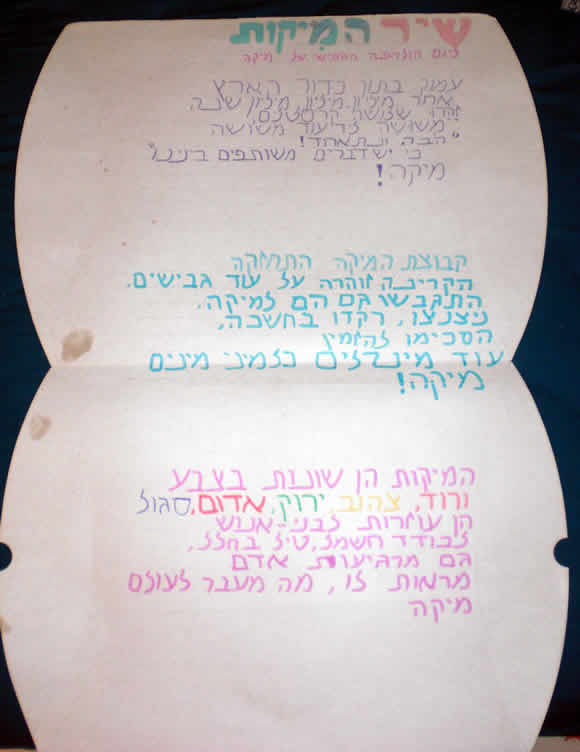 שיר המיקות
ליום הולדתה החמישי של מיקה
עמוק בתוך כדור הארץ
אחר מליון מליון מליון שנה
משושה צריעוד משושה
"הבה נתאחד!
כי יש דברים משותפים בינינו"
מיקה!
קבוצת המיקה התרחקה
הקרינה אוהרה על עוד גבישים.
התגבשו גם הם למיקה.
נצנצו, רקדו בחשכה,
הסכימו להאמין
עוד מינרלים בלמיני מינים
מיקה!
המיקות הן שונות בצבע
ורוד, צהוב, ירוק, אדום, סגול
הן עוזרות לבני-אנוש
לבודד חשמל, טיל בחלל,
גם מרגיעות אדם
מראות לו, מה מעבר לעולם
מיקה